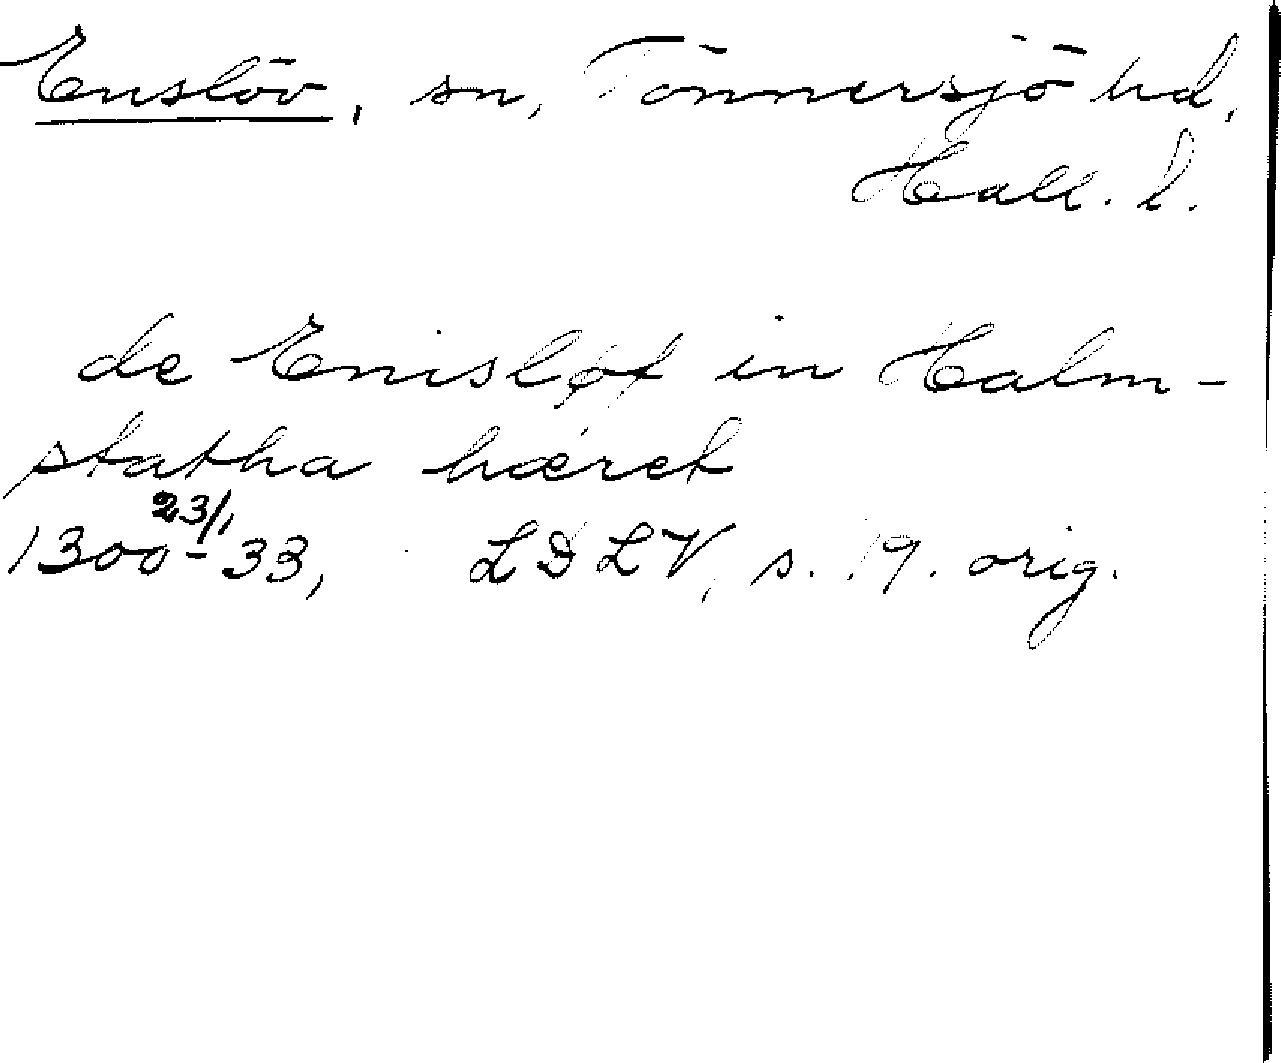 Enslöv, sn, Tönnersjö hd,
Hall. l.
de Enisløf in Halm-
statha hæret
1300 23/1 -33, LDLV, s. 19. orig.